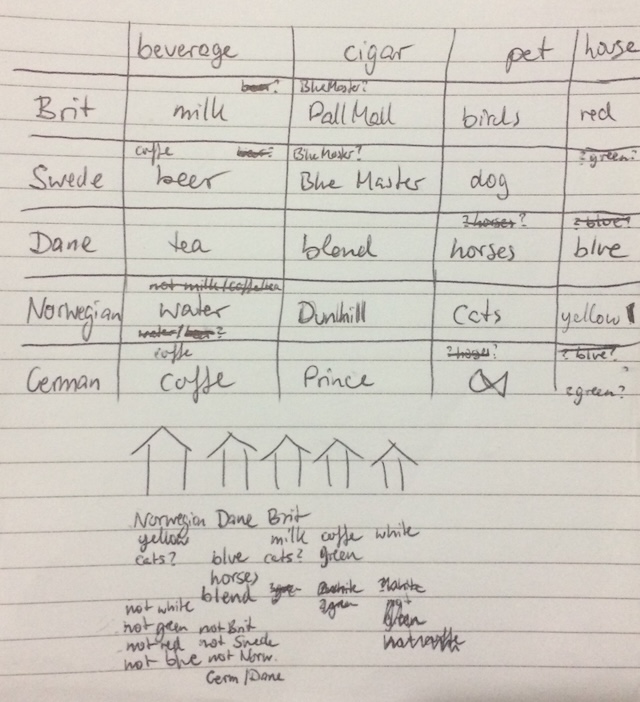 beverage cigar pet house
beer? Blue Master?
Brit milk Pall Mall birds red
coffe beer? Blue Master? ?green?
Swede beer Blue Master dog
?horses? ?blue?
Dane tea blend horses blue
not milk/coffe/tea
Norwegian water Dunhill cats yellow
water/beer?
coffe ?horses? ?blue?
German coffe Prince ?green?
Norwegian Dane Brit
yellow milk coffe white
cats? blue cats? green
horses
blend ?green ?white ?white
not white ?green
not green not Brit green
not red not Swede not coffe
not blue not Norw.
Germ/Dane